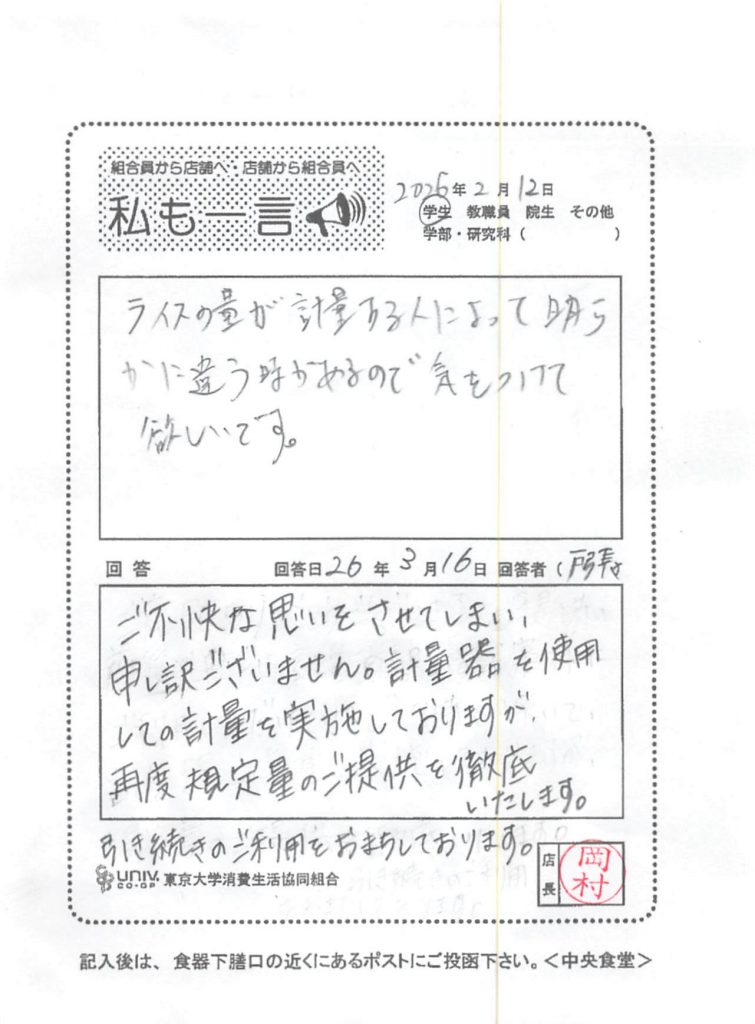 組合員から店舗へ・店舗から組合員へ
私も一言
2026年2月12日
学生 教職員 院生 その他
学部・研究科（ ）
ライスの量が計量する人によって明ら
かに違う時があるので気をつけて
欲しいです。
回答 回答日26年3月16日 回答者（店長）
ご不快な思いをさせてしまい、
申し訳ございません。計量器を使用
しての計量を実施しておりますが、
再度規定量のご提供を徹底
いたします。
引き続きのご利用をおまちしております。
UNIV. CO-OP 東京大学消費生活協同組合
店長 岡村
記入後は、食器下膳口の近くにあるポストにご投函下さい。＜中央食堂＞